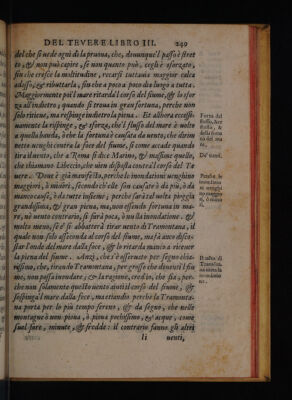 DEL TEVERE LIBRO III. 249
del che si vede ogni dì la pruoua, che, dounque'l passo è stret
to, & non può capire, se non quanto può, cegli è sforzato,
fin che cresce la moltitudine, recarsi tuttauia maggior calca
adosso, & ributtarla, fin che a poca a poco dà luogo a tutta.
Maggiormente poi'l mare ritarda'l corso del fiume, & lo sfor
za all'indietro, quando si troua in gran fortuna, perche non
solo ritiene, ma respinge indietro la piena. Et allhora eccessi-
uamente la rispinge, & e sforza, che'l flusso del mare è volto
a quella banda, ò che la fortuna è causata da vento, che diritta
mente venghi contra la foce del fiume, si come accade quando
tira il vento, che a Roma si dice Marino, & massime quello,
che chiamano Libeccio, che vien disposto contra'l corso del Te
uere. Doue è già manifesto, perche le inondationi venghino
maggiori, ò minori, secondo ch'elle son causate ò da più, ò da
manco cause, ò da tutte insieme; perche sarà tal volta pioggia
grandissima, & gran piena, ma, non essendo fortuna in ma-
re, nè vento contrario, si farà poca, ò nulla inondatione. &
molto meno, se e' si abbatterà tirar vento di Tramontana, il
quale non solo asseconda al corso del fiume, ma ancor disco-
sta l'onde del mare dalla foce, & lo ritarda manco a riceuer
la piena del fiume. Anzi, che s'è osseruato per segno chia-
rissimo, che, tirando Tramontana, per grosso che douenti'l fiu
me, non puossi inondare, & la ragione, credio, che sia; per-
che non solamente quello vento aiuti'l corso del fiume, &
sospinga'l mare dalla foce, ma etiandio perche la Tramonta-
na porta per lo più tempo sereno, & da segno, che nelle
montagne ò non pioua, ò pioua pochissimo, & acque, come
suol fare, minute, & fredde: il contrario fanno gli altri
Ii venti,
Forza del
flusso, &
della fortu
na del ma
re,
De' venti.
Perche le
inondatio
ni venghi
no maggio
ri, ò mino
ri.